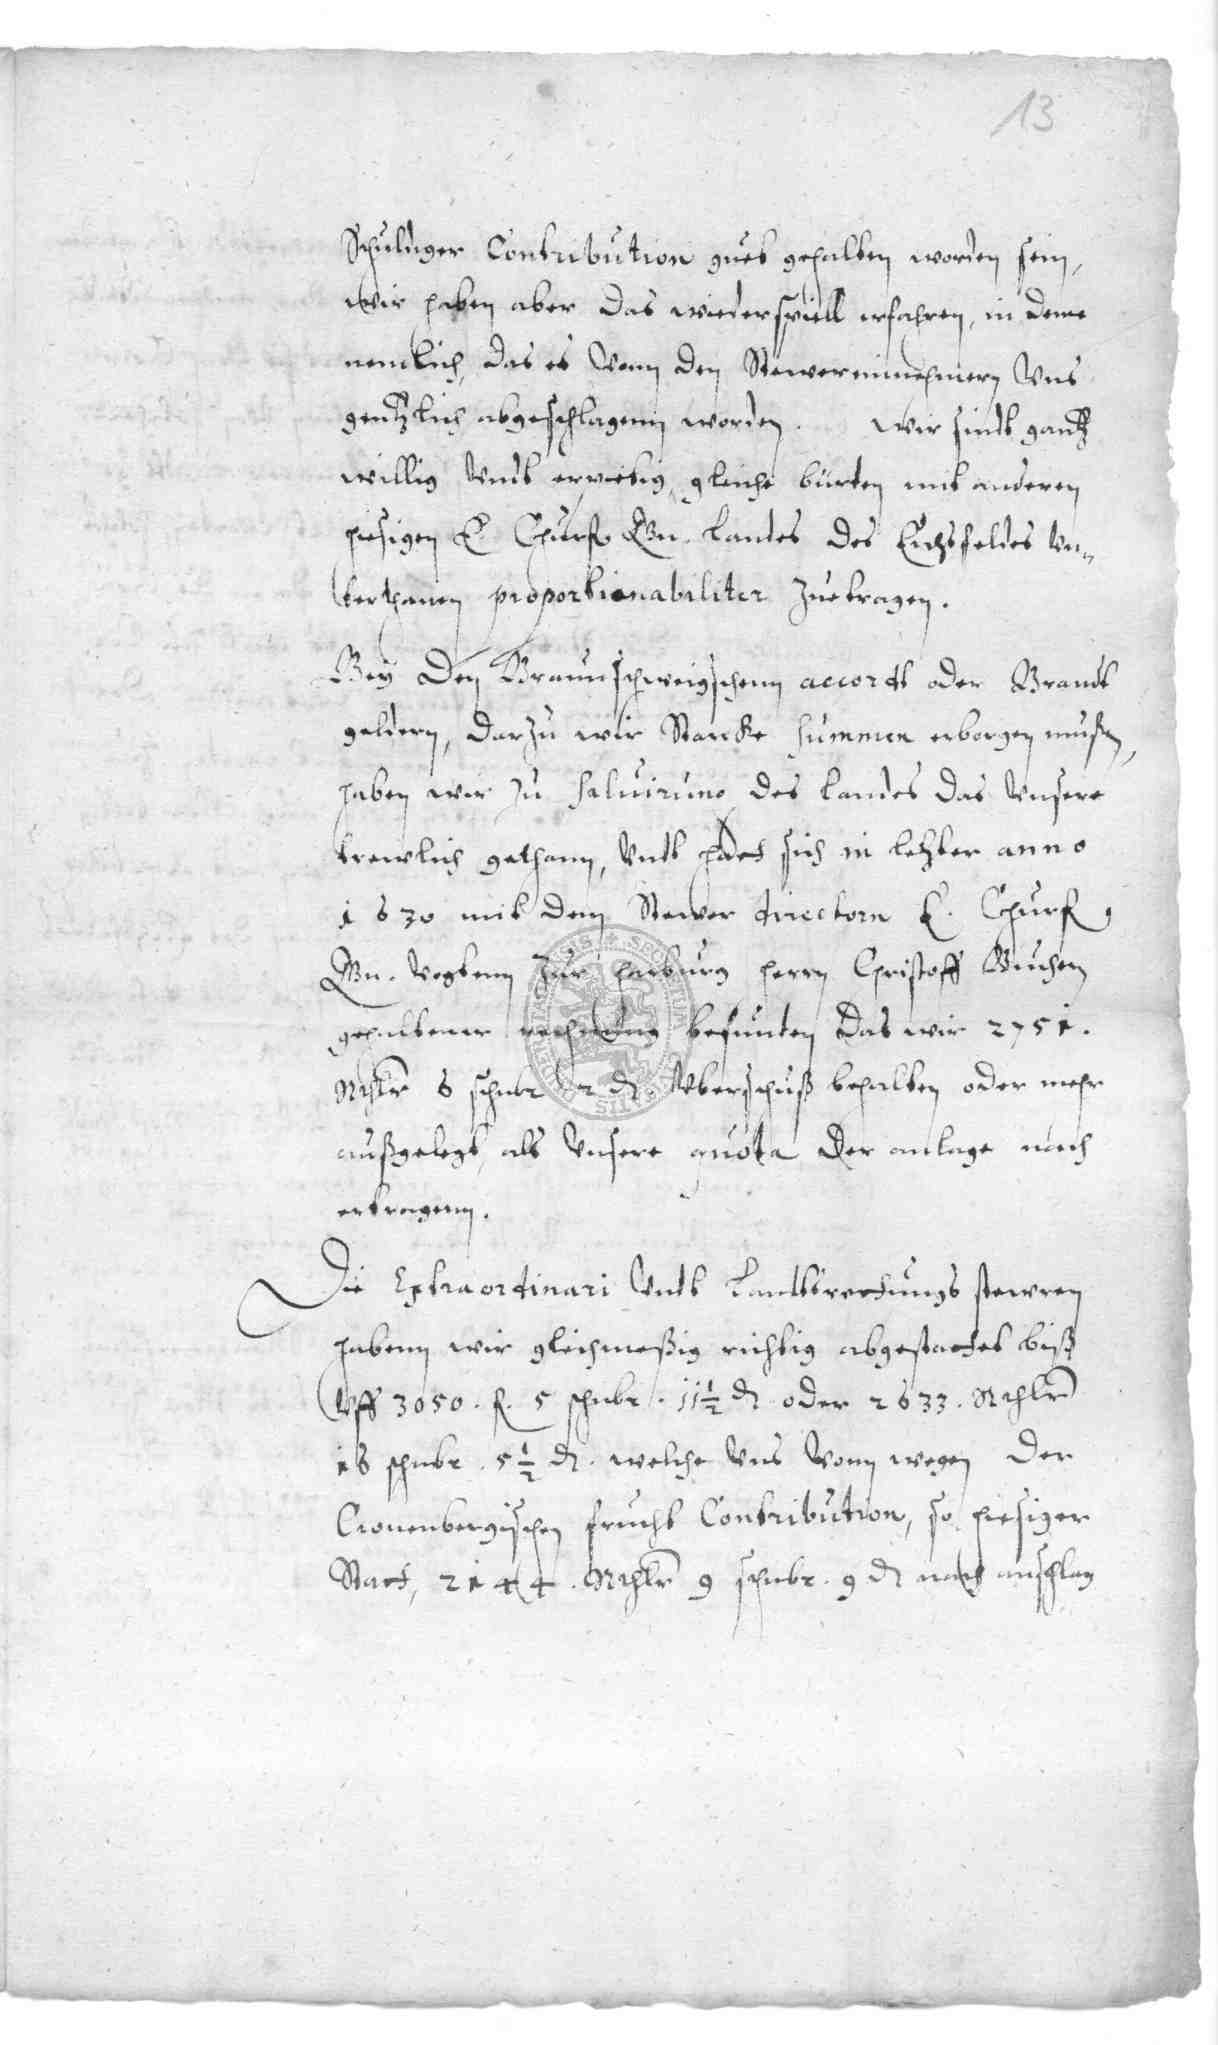 13
Schuldiger Contribution guet gehalten worden sein,
wir haben aber das wiederspiell erfahren, in deme
nemlich, das es Vonn den Stewereinnehmern Vns
gentzlich abgeschlagenn worden. Wir sindt gantz
willig Vndt erpietig, gleiche bürden mit anderen
hiesigen E Churf. Gn. Landes des Eichsfeldes Vn-
terthanen proportionabiliter zuetragen.
Bey den Braunschweigischenn accordt oder Brandt
geldern, darzu wir Starcke summen erborgen mußen,
haben wir zu salvirung des Landes das Vnsere
trewlich gethann, Vndt hadt sich in letzter anno
1630 mit dem Stewer directorn E. Churf.
Gn. Vogtenn zur Harburg Herrn Christoff Buchen
gehaltener rechnung befunden das wir 2751.
Rthlr 6 schnbr 2 d. Vberschuß behalten oder mehr
außgelegt, als Vnsere quota der anlage nach
ertragenn.
Die Extraordinari Vndt Landtsrettungs stewren
habenn wir gleichmeßig richtig abgestattet biß
Vff 3050. f. 5 schnbr. 11½ d. oder 2633. Rthlr
16 schnbr. 5½ d. welche Vns Vonn wegen der
Cronenbergischen frucht Contribution, so hiesiger
Stadt, 2144. Rthlr 9 schnbr. 9 d nach anschlag